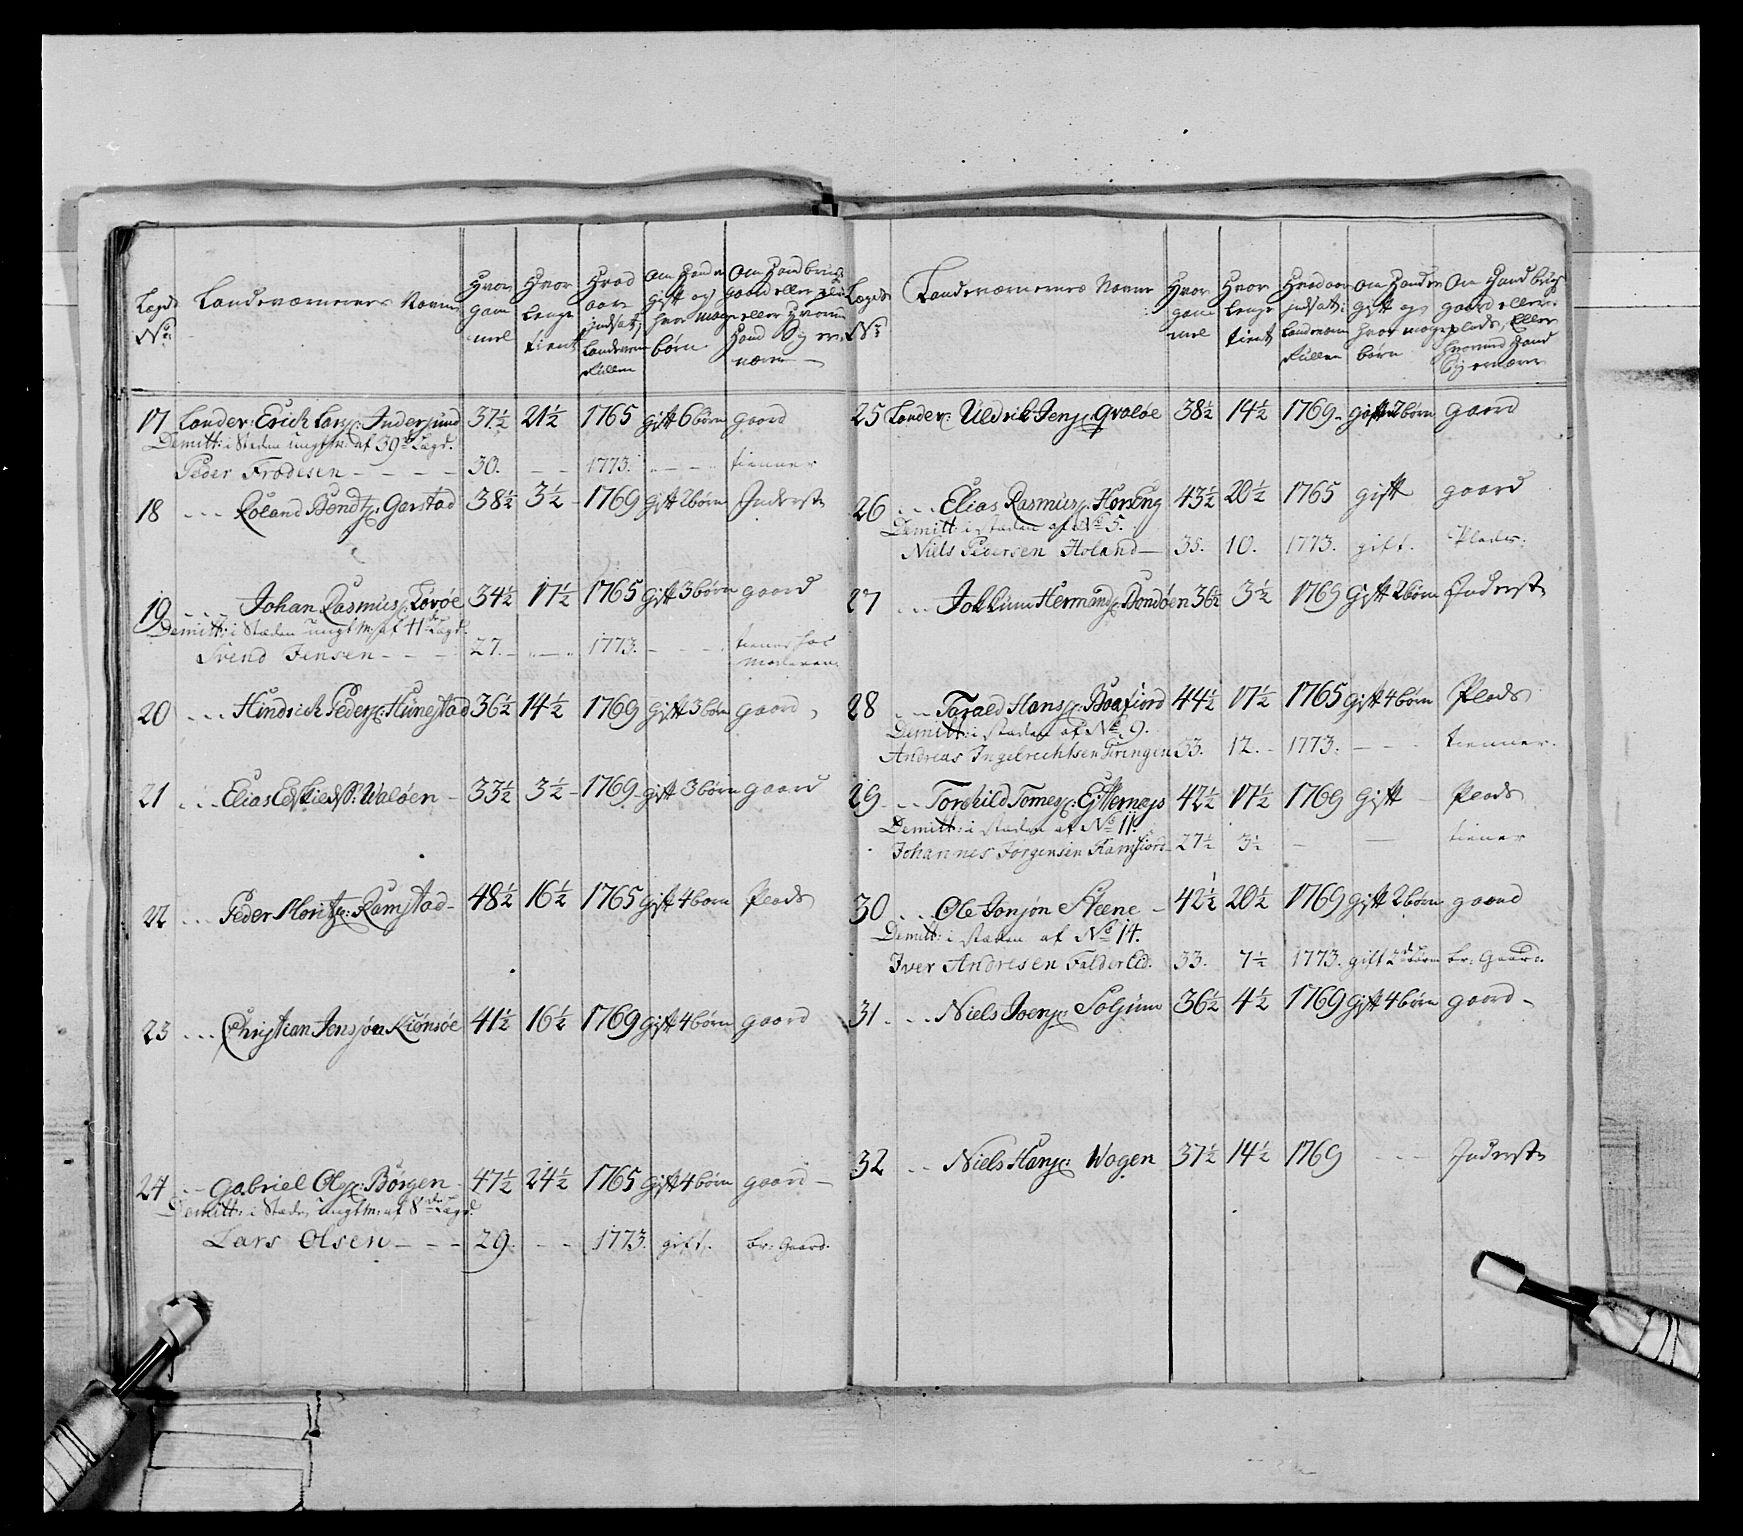 Lægds No: | Landeværnernes Navne | Hvor gam mel | Hvor lenge tient | Hvad aar indsat i Landeværn Rullen | Om Hand er gift og hvor mange børn | Om Hand bruger gaard eller Plads eller hvorved Hand Sig er nærer
17 Landev: Erick Lars: Indersund 37½ 21½ 1765 gift 6 børn gaard
Demitt: i Steden ungt m: af 39de Lægd.
Peder Frodesen - - - - 30. - - 1773. - - - tienner
18 - - - Roland Bendtz: Garstad 38½ 3½ - 1769 gift 2 børn Inderste
19 - - - Johan Rasmus: Lovøe 34½ 17½ 1765 gift 3 børn gaard
Demitt: i Stæden ungt m: af 41de Lægd.
Svend Jensen - - - 27. - - 1773. - - - tiener hos Moderen
20 - - - Hindrich Peders: Hunestad 36½ 14½ 1769 gift 3 børn gaard
21 - - - Elias Eskilds: Waløen - 33½ 3½ - 1769 - gift 3 børn gaard
22 - - - Peder Moritz: Ramstad - 48½ 16½ 1765 gift 4 børn Plads
23 - - - Christian Jensøn Kiønsøe 41½ 16½ 1769 gift 4 børn gaard
24 - - Gabriel Ols: Børgen 47½ 24½ 1765 gift 4 børn gaard -
Demitt: i Stæden ungt m: af 8de Lægd.
Lars Olsen - - - 29. - - 1773. gift. br: Gaard.
Lægds No: | Landeværnernes Navne | Hvor gam mel | Hvor lenge tient | Hvad aar indsat i Landeværn Rullen | Om Hand er gift og hvor mange børn | Om Hand bruger gaard eller Plads, Eller hvorved Hand Sig ernærer
25 Landev: Uldrik Jens: Qvaløe 38½ 14½ 1769 - gift 2 børn gaard
26 - - - Elias Rasmus: Horseng 43½ 20½ 1765 gift gaard
Demitt: i stæden af No 5.
Niels Pedersen Holand - 35. 10. 1773. gift. Plads.
27 - - - Jokkum Hermands: Bondøen 36½ 3½ 1769 gift 2 børn Inderste
28 - - Tarald Hans: 44½ 17½ 1765 gift 4 børn Plads
Demitt: i stæden af No 9.
Andreas Ingebrechtsen Tiringen 33. 12. - 1773. - - - tienner.
29 - - Torkild Tomes: 42½ 17½ 1769 gift - Plads
Demitt: i stæden af No 11.
Johannes Jorgensen Ramfiord - 27½ 3½ - - tiener
30 - - - Ole Jonsøn Steene - 42½ 20½ 1769 gift 2 børn gaard
Demitt: i stæden af No 14.
Iver Andresen Falder Eid. 33. 7½ 1773. gift 2de børn br: Gaard.
31 - - - Niels Joens: Solsem 36½ 4½ 1769 gift 4 børn gaard -
32 - - Niels Hans: Wogen 37½ 14½ 1769 - - - Inderste